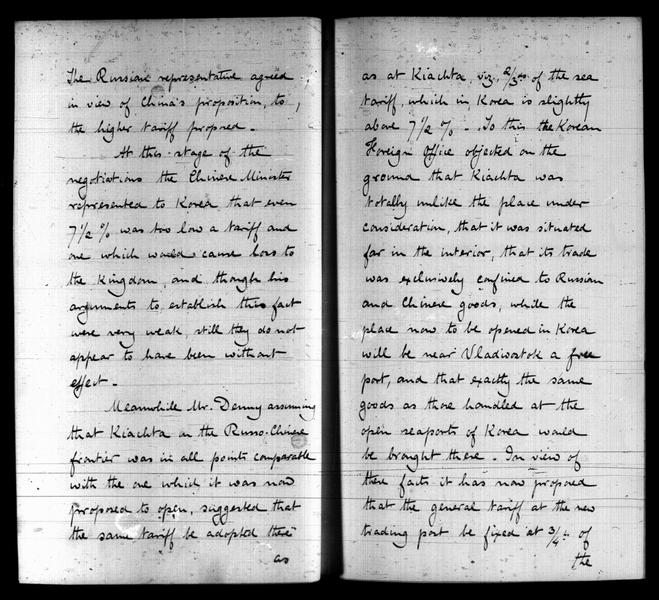 The Russian representative agreed
in view of China's proposition, to,
the higher tariff proposed.
At this stage of the
negotiations the Chinese Minister
represented to Korea that even
7 1/2 % was too low a tariff and
one which would cause loss to
the Kingdom, and though his
arguments to establish this fact
were very weak, still they do not
appear to have been without
effect.
Meanwhile Mr. Denny assuming
that Kiachta on the Russo-Chinese
frontier was in all points comparable
with the one which it was now
proposed to open, suggested that
the same tariff be adopted there
as
as at Kiachta, viz., 2/3rds of the sea
tariff, which in Korea is slightly
above 7 1/2 %. To this the Korean
Foreign Office objected on the
ground that Kiachta was
totally unlike the place under
consideration, that it was situated
far in the interior, that its trade
was exclusively confined to Russian
and Chinese goods, while the
place now to be opened in Korea
will be near Vladivostok a free
port, and that exactly the same
goods as those handled at the
open seaports of Korea would
be brought there. In view of
these facts it has now proposed
that the general tariff at the new
trading port be fixed at 3/4th of
the